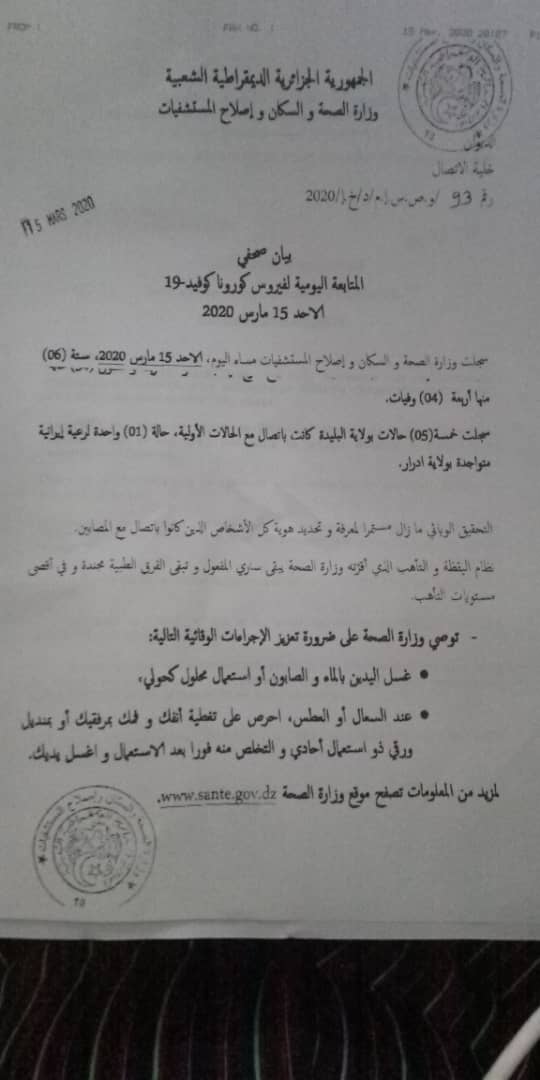 FROM :
FAX NO. :
15 Mar. 2020 20:27
الجمهورية الجزائرية الديمقراطية الشعبية
وزارة الصحة و السكان و إصلاح المستشفيات
الديوان
خلية الاتصال
رقم 93 /و.ص.س.إ.م/د/خ.إ/2020
15 MARS 2020
بيان صحفي
المتابعة اليومية لفيروس كورونا كوفيد-19
الاحد 15 مارس 2020
سجلت وزارة الصحة و السكان و إصلاح المستشفيات مساء اليوم، الاحد 15 مارس 2020، ستة (06)
منها أربعة (04) وفيات.
سجلت خمسة(05) حالات بولاية البليدة كانت باتصال مع الحالات الأولية، حالة (01) واحدة لرعية إيرانية
متواجدة بولاية ادرار.
التحقيق الوبائي ما زال مستمرا لمعرفة و تحديد هوية كل الأشخاص الذين كانوا باتصال مع المصابين.
نظام اليقظة و التأهب الذي أقرته وزارة الصحة يبقى ساري المفعول و تبقى الفرق الطبية مجندة و في أقصى
مستويات التأهب.
- توصي وزارة الصحة على ضرورة تعزيز الإجراءات الوقائية التالية:
● غسل اليدين بالماء و الصابون أو استعمال محلول كحولي،
● عند السعال أو العطس، احرص على تغطية أنفك و فمك بمرفقيك أو بمنديل
ورقي ذو استعمال أحادي و التخلص منه فورا بعد الاستعمال و اغسل يديك.
لمزيد من المعلومات تصفح موقع وزارة الصحة www.sante.gov.dz.